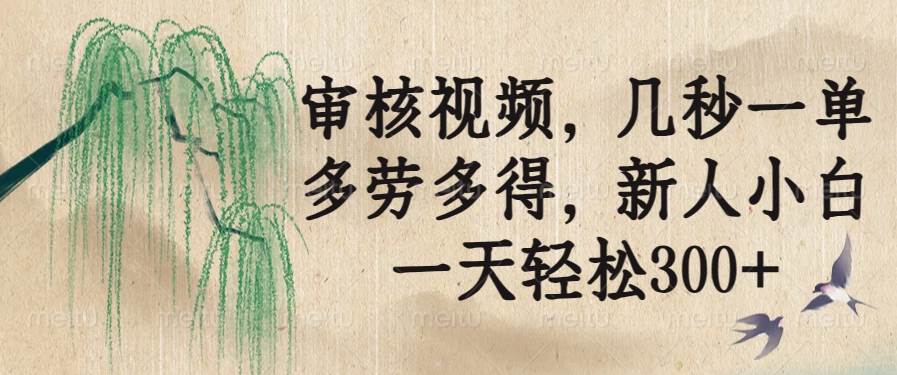 审核视频，几秒一单
多劳多得，新人小白
一天轻松300+
meitu